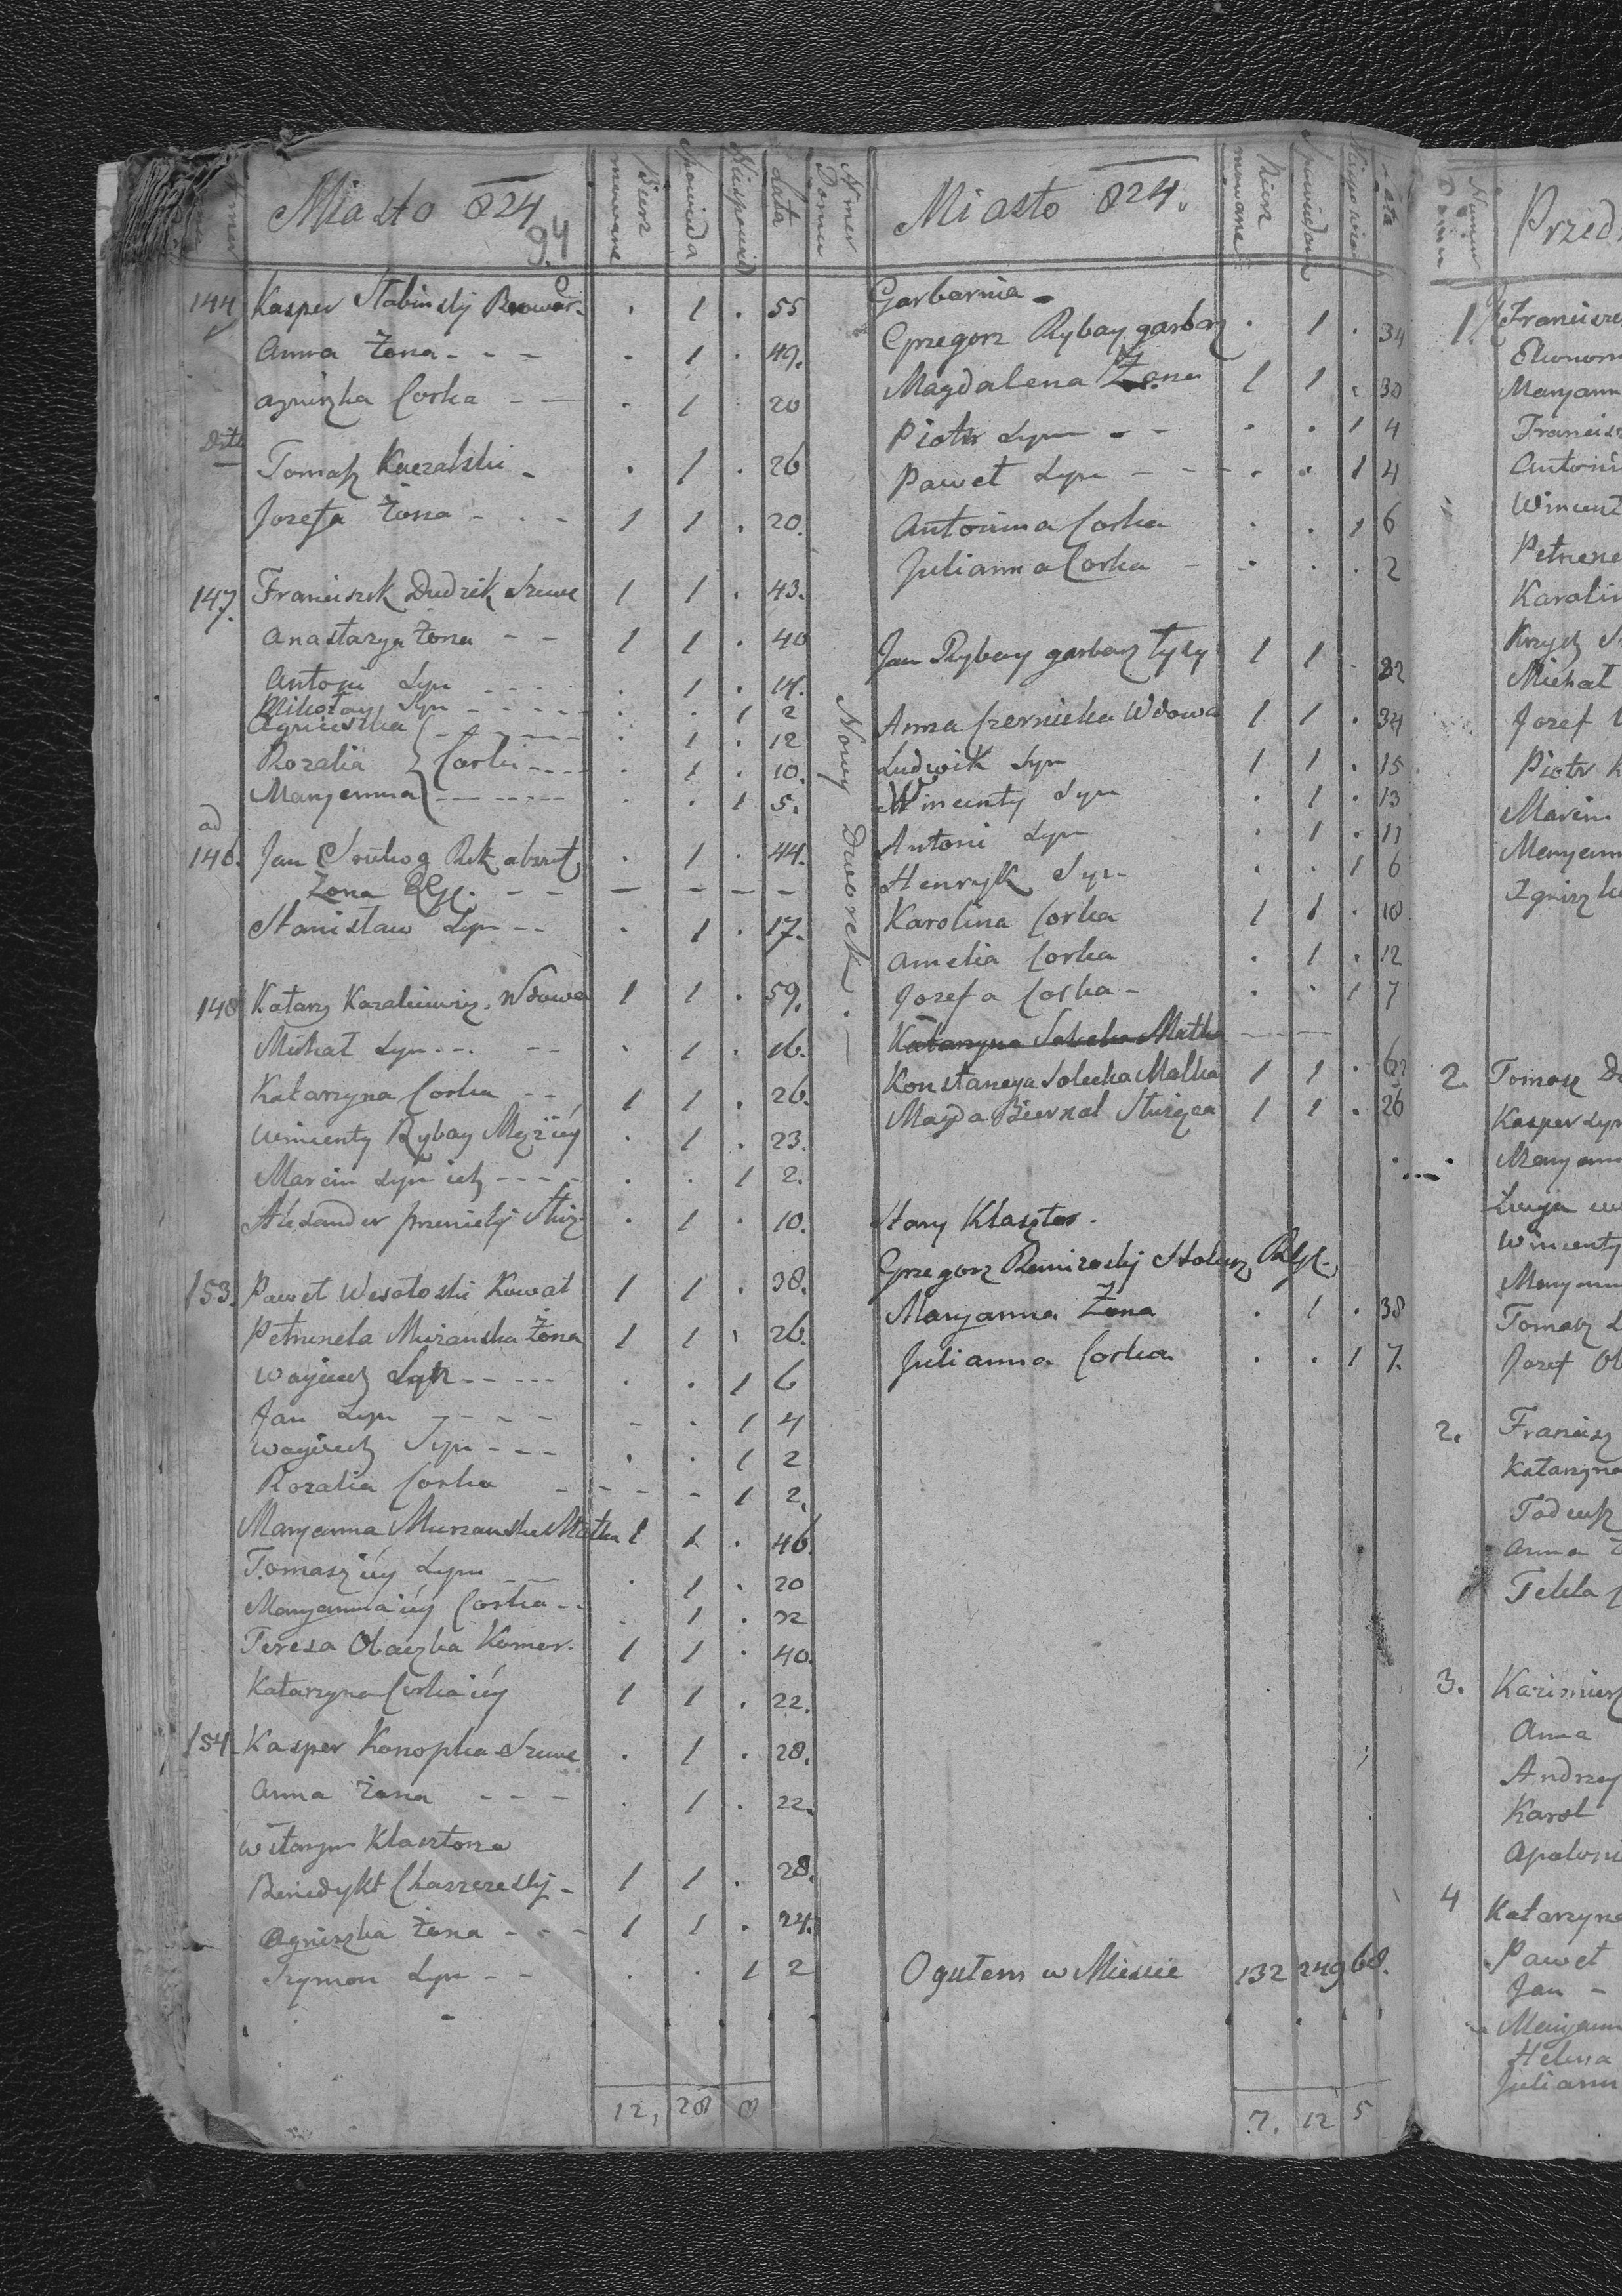 Miasto 824
94
Bierz mowane
Spowieda
Niespowied
Lata
144 Kasper Stabinsky Browar. . 1 . 55
Anna Żona - - - . 1 . 49.
Agniszka Corka - - . 1 . 20
Ditto Tomasz Kaczalski - . 1 . 26
Jozefa Żona - - - 1 1 . 20.
147. Franciszek Dudzik Szewc 1 1 . 43.
Anastazya Żona - - 1 1 . 40
Antoni Syn - - - . 1 . 14.
Mikołay Syn - - - - . . 1 2
Agnieszka - - - - . 1 . 12
Rozalia } Corki - - - . 1 . 10.
Maryanna - - - - . . 1 5.
ad
146. Jan . 1 . 44.
Żona RGL. - - - - - -
Stanisław Syn - - . 1 . 17.
148 Katarz Wdowa 1 1 . 59.
Michał Syn - - - - . 1 . 16.
Katarzyna Corka - - 1 1 . 26.
Wincenty Rybay Mąż iéy . 1 . 23.
Marcin Syn ich - - - - . . 1 2.
Alexander Służ. . 1 . 10.
153. Paweł Wesołoski Kowal 1 1 . 38.
Petrunela Murzańska Żona 1 1 . 26.
Woyciech Syn - - - - . . 1 6
Jan Syn - - - - - . 1 4
Woyciech Syn - - - . . 1 2
Rozalia Corka - - - - 1 2.
Maryanna Murzanska Matka 1 1 . 46.
Tomasz iéy Syn - - . 1 . 20
Maryanna iéy Corka - - . 1 . 22
Teresa Obaczka Komor. 1 1 . 40.
Katarzyna Corka iéy 1 1 . 22.
154. Kasper Konopka Szewc . 1 . 28.
Anna Żona - - - . 1 . 22.
W Starym Klasztorze
Benedykt Chaszczesky - 1 1 . 28.
Agniszka Żona - - - 1 1 . 24.
Szymon Syn - - . . 1 2
12, 28 8
Numer Domu
Miasto 824.
Bierz mowane
Spowiedane
Lata
Garbarnia -
Grzegorz Rybay garbarz . 1 . 34
Magdalena Żona 1 1 . 30
Piotr Syn - - . . 1 4
Paweł Syn - - - . . 1 4
Antonina Corka . . 1 6
Julianna Corka - - . . . 2
Jan Rybay garbarz Łysy 1 1 . 82
Nowy Dworek . -
Anna Czernicka Wdowa 1 1 . 34
Ludwik Syn 1 1 . 15
Wincenty Syn . 1 . 13
Antoni Syn . 1 . 11
Henryk Syn . . 1 6
Karolina Corka 1 1 . 18
Amelia Corka . 1 . 12
Jozefa Corka - . . 1 7
Katarzyna Solecka Matka - -
Konstancya Solecka Matka 1 1 . 62
Magda Biernat Służąca 1 1 . 26
Stary Klasztor.
Grzegorz Remizosky Stolarz RGL.
Maryanna Żona . 1 . 38
Julianna Corka . . 1 7.
Ogułem w Mieście 132 249 68.
7. 12 5
Numer Domu
Przed
1. Francisze
Ekonom
Maryann
Francisz
Antoni
Wincent
Petrune
Karolin
Krzysz
Michał
Jozef
Piotr K
Marcin
Maryann
Agniszk
2. Tomasz D
Kasper Syn
Maryann
Wincenty
Maryann
Tomasz S
Jozef Ob
2. Francisz
Katarzyna
Tadeusz
Anna Ż
Tekla
3. Kazimierz
Anna
Andrzey
Karol
Apolon
4 Katarzyna
Paweł
Jan -
Maryann
Helena
Juliann